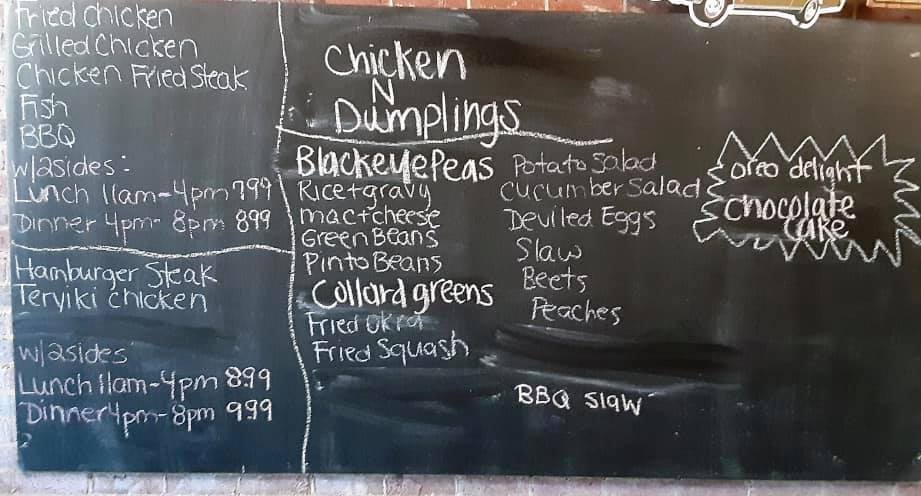 Fried Chicken
Grilled Chicken
Chicken Fried Steak
Fish
BBQ
w/2sides:
Lunch 11am-4pm 799
Dinner 4pm- 8pm 899
Hamburger Steak
Teryiki chicken
w/2sides
Lunch 11am-4pm 899
Dinner 4pm-8pm 999
Chicken
N
Dumplings
Blackeye Peas
Rice+gravy
mac+cheese
Green Beans
Pinto Beans
Collard greens
Fried Okra
Fried Squash
Potato Salad
Cucumber Salad
Deviled Eggs
Slaw
Beets
Peaches
BBQ Slaw
oreo delight
chocolate
cake